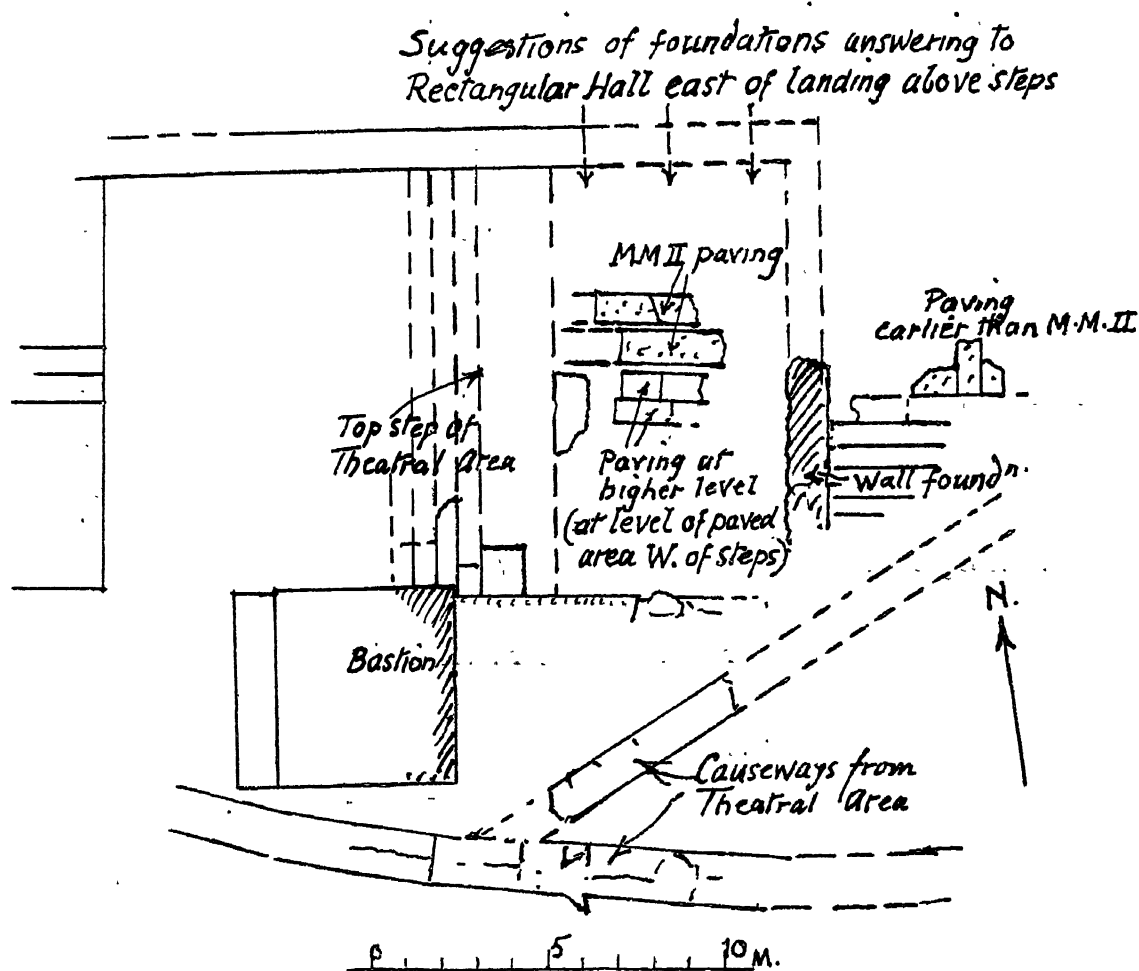 Suggestions of foundations answering to
Rectangular Hall east of landing above steps
MM II paving
Paving
earlier than M.M.II.
Top step of
Theatral Area
Paving at
higher level
(at level of paved
area W. of steps)
Wall foundn.
N.
Bastion
Causeways from
Theatral Area
0 5 10 M.